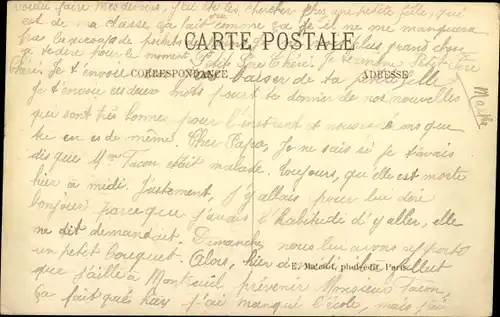 voulu faire mes devoirs, j'ai été les chercher chez une petite fille, qui
est de ma classe ça fait comme ça je il ne me manquera
pas beaucoup de plus grand chose
CARTE POSTALE
à te dire pour le moment Petit Père Chéri, Je termine Petit Père
Chéri. Je t'envoie baiser de ta
CORRESPONDANCE
ADRESSE
Je t'envoie ces deux mots pour te donner de nos nouvelles
qui sont très bonnes pour l'instant et nous espérons que
tu en es de même. Cher Papa, Je ne sais si je t'avais
dis que Mme Tacon était malade. Toujours, qu'elle est morte
hier à midi. Justement, J'y allais pour lui dire
bonjour parce que j'avais l'habitude d'y aller, elle
me dit demandait. Dimanche, nous lui avons rapporté
un petit bouquet. Alors, hier à midi il a fallut
E. Malcuit, phot-édit, Paris
que j'aille à Montreuil prévenir Monsieur Tacon,
Ça fait que j'ai manqué l'école, mais j'ai